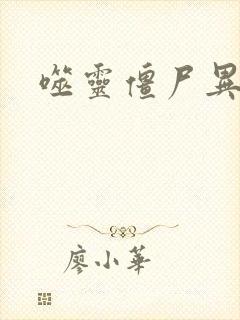 噬靈僵尸異
廖小華